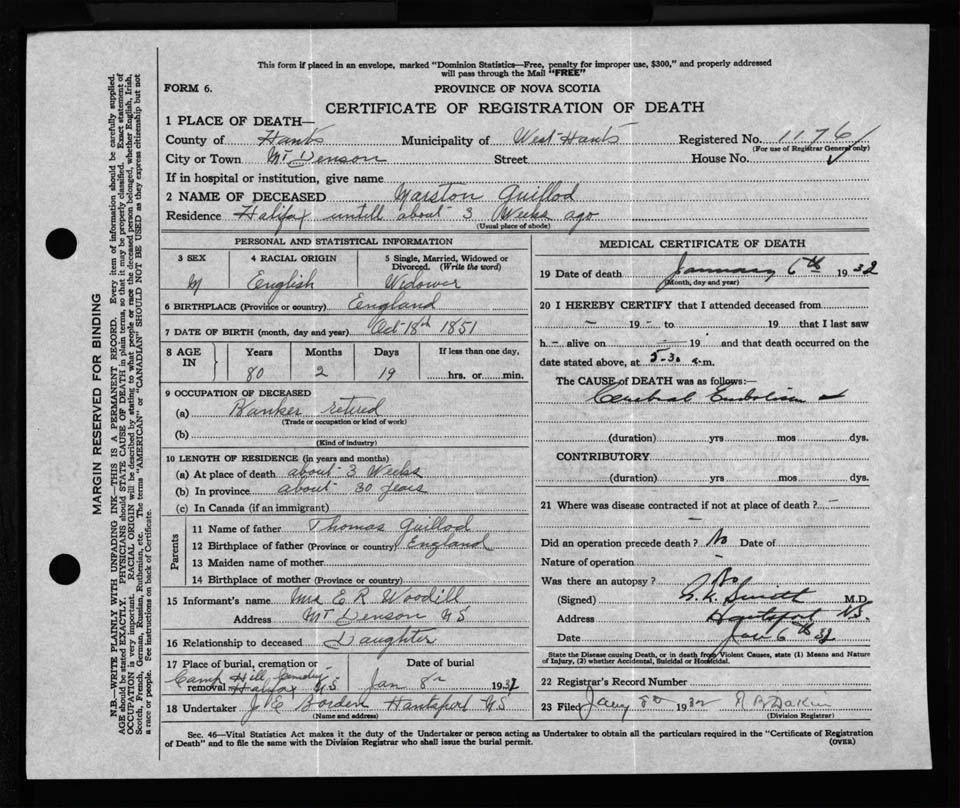 This form if placed in an envelope, marked "Dominion Statistics—Free, penalty for improper use, $300," and properly addressed
will pass through the Mail "FREE"
FORM 6.
PROVINCE OF NOVA SCOTIA
CERTIFICATE OF REGISTRATION OF DEATH
1 PLACE OF DEATH—
County of Hants Municipality of West Hants Registered No. 1176
(For use of Registrar General only)
City or Town Mt Denson Street House No.
If in hospital or institution, give name
2 NAME OF DECEASED Marston Guillod
Residence Halifax untill about 3 Weeks ago
(Usual place of abode)
PERSONAL AND STATISTICAL INFORMATION
3 SEX 4 RACIAL ORIGIN 5 Single, Married, Widowed or
Divorced. (Write the word)
M English Widower
6 BIRTHPLACE (Province or country) England
7 DATE OF BIRTH (month, day and year) Oct 18th 1851
8 AGE IN Years Months Days If less than one day,
80 2 19 hrs. or min.
9 OCCUPATION OF DECEASED
(a) Banker retired
(Trade or occupation or kind of work)
(b)
(Kind of industry)
10 LENGTH OF RESIDENCE (in years and months)
(a) At place of death about 3 Weeks
(b) In province about 30 years
(c) In Canada (if an immigrant)
Parents
11 Name of father Thomas Guillod
12 Birthplace of father (Province or country) England
13 Maiden name of mother
14 Birthplace of mother (Province or country)
15 Informant's name Mrs E R Woodill
Address Mt Denson NS
16 Relationship to deceased Daughter
17 Place of burial, cremation or removal Date of burial
Camp Hill Cemetery
Halifax NS Jan 8th 1932
18 Undertaker Borden Hantsport NS
(Name and address)
MEDICAL CERTIFICATE OF DEATH
19 Date of death January 6th 1932
(Month, day and year)
20 I HEREBY CERTIFY that I attended deceased from
- 19 - to 19 that I last saw
h - alive on 19 and that death occurred on the
date stated above, at 5-30 a.m.
The CAUSE of DEATH was as follows:—
Cerebral Embolism
(duration) yrs mos dys.
CONTRIBUTORY
(duration) yrs. mos. dys.
21 Where was disease contracted if not at place of death? -
Did an operation precede death? No Date of
Nature of operation
Was there an autopsy? No
(Signed) Smith M.D.
Address Hantsport NS.
Date Jan 6th 32
State the Disease causing Death, or in death from Violent Causes, state (1) Means and Nature
of Injury, (2) whether Accidental, Suicidal or Homicidal.
22 Registrar's Record Number
23 Filed Jany 8th 1932
(Division Registrar)
Sec. 46—Vital Statistics Act makes it the duty of the Undertaker or person acting as Undertaker to obtain all the particulars required in the "Certificate of Registration
of Death" and to file the same with the Division Registrar who shall issue the burial permit.
(OVER)
MARGIN RESERVED FOR BINDING
N.B.—WRITE PLAINLY WITH UNFADING INK—THIS IS A PERMANENT RECORD. Every item of information should be carefully supplied.
AGE should be stated EXACTLY. PHYSICIANS should STATE CAUSE OF DEATH in plain terms, so that it may be properly classified. Exact statement of
OCCUPATION is very important. RACIAL ORIGIN will be described by stating to what people or race the deceased person belonged, whether English, Irish,
Scotch, French, German, Russian, Ruthenian, etc. The terms "AMERICAN" or "CANADIAN" SHOULD NOT BE USED as they express citizenship but not
a race or people. See instructions on back of Certificate.